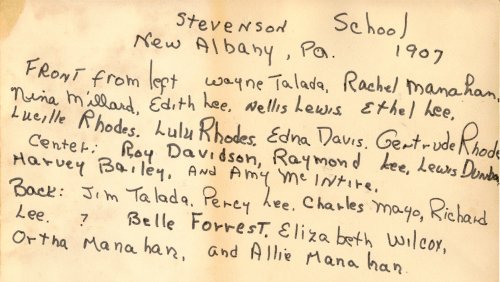 Stevenson School
New Albany, Pa. 1907
FRONT from left Wayne Talada, Rachel Manahan,
Nina Millard, Edith Lee. Nellis Lewis Ethel Lee,
Lucille Rhodes. Lulu Rhodes. Edna Davis. Gertrude Rhode
Center: Roy Davidson, Raymond Lee, Lewis Dunba
Harvey Bailey, And Amy McIntire,
Back: Jim Talada, Percy Lee. Charles Mayo, Richard
Lee. ? Belle Forrest, Elizabeth Wilcox,
Ortha Manahan, and Allie Manahan.